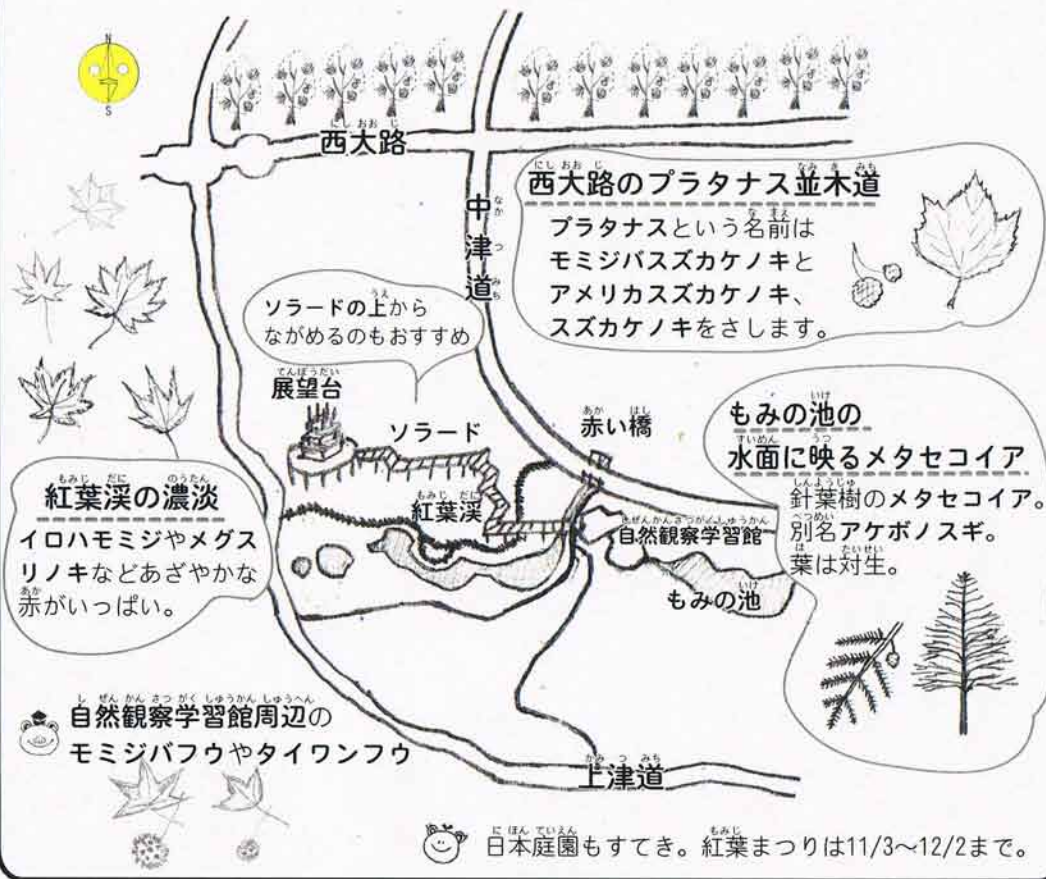 N
S
西大路
中津道
西大路のプラタナス並木道
プラタナスという名前は
モミジバスズカケノキと
アメリカスズカケノキ、
スズカケノキをさします。
ソラードの上から
ながめるのもおすすめ
展望台
ソラード
赤い橋
紅葉渓
自然観察学習館
もみの池
もみの池の
水面に映るメタセコイア
針葉樹のメタセコイア。
別名アケボノスギ。
葉は対生。
紅葉渓の濃淡
イロハモミジやメグス
リノキなどあざやかな
赤がいっぱい。
自然観察学習館周辺の
モミジバフウやタイワンフウ
上津道
日本庭園もすてき。紅葉まつりは11/3～12/2まで。